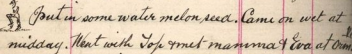 Put in some water melon seed. Came on wet at
midday. Went with Top & met mamma & Eva at